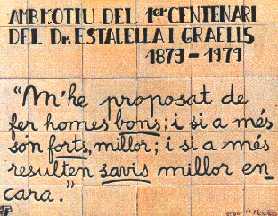 AMB MOTIU DEL 1er CENTENARI
DEL Dr. ESTALELLA I GRAELLS
1879-1979
"M'he proposat de
fer homes bons; i si a més
són forts, millor; i si a més
resulten savis millor en-
cara."